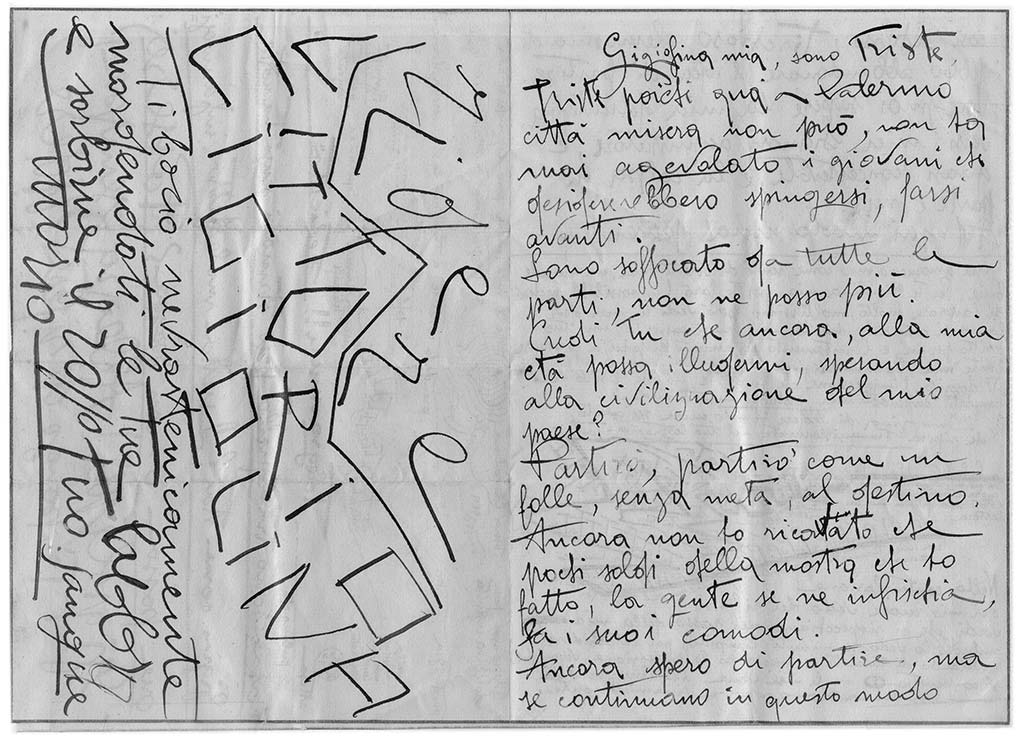 Gigiolina mia, sono Triste,
Triste poiché qua a Palermo
città misera non può, non ha
mai agevolato i giovani che
desidererebbero spingersi, farsi
avanti.
Sono soffocato da tutte le
parti, non ne posso più.
Credi Tu che ancora, alla mia
età possa illudermi, sperando
alla civilizzazione del mio
paese?
Partirò, partirò come un
folle, senza meta, al destino.
Ancora non ho ricavato che
pochi soldi della mostra che ho
fatto, la gente se ne infischia,
fa i suoi comodi.
Ancora spero di partire, ma
se continuano in questo modo
GiGiOLINA
Ti bacio nevrastenicamente
mordendoti le tue labbra
e sorbire il 20% tuo sangue
Mario